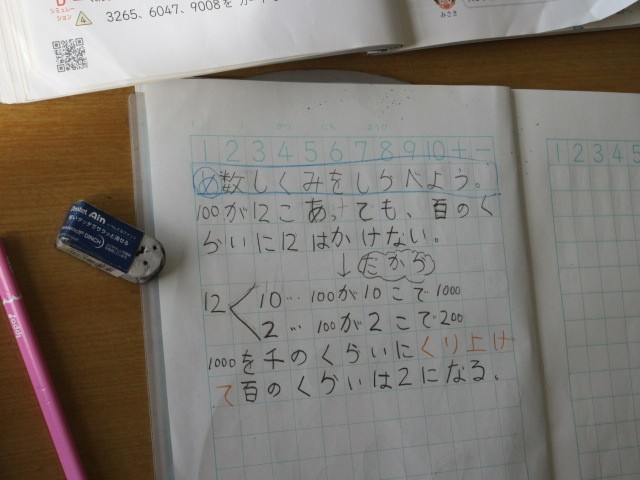 3265、6047、9008を
みさき
1 2 3 4 5 6 7 8 9 10 + −
め 数しくみをしらべよう。
100が12こあっても、百のく
らいに12はかけない。
↓だから
12 < 10… 100が10こで1000
2… 100が2こで200
1000を千のくらいにくり上げ
て百のくらいは2になる。
1 2 3 4 5
Ain